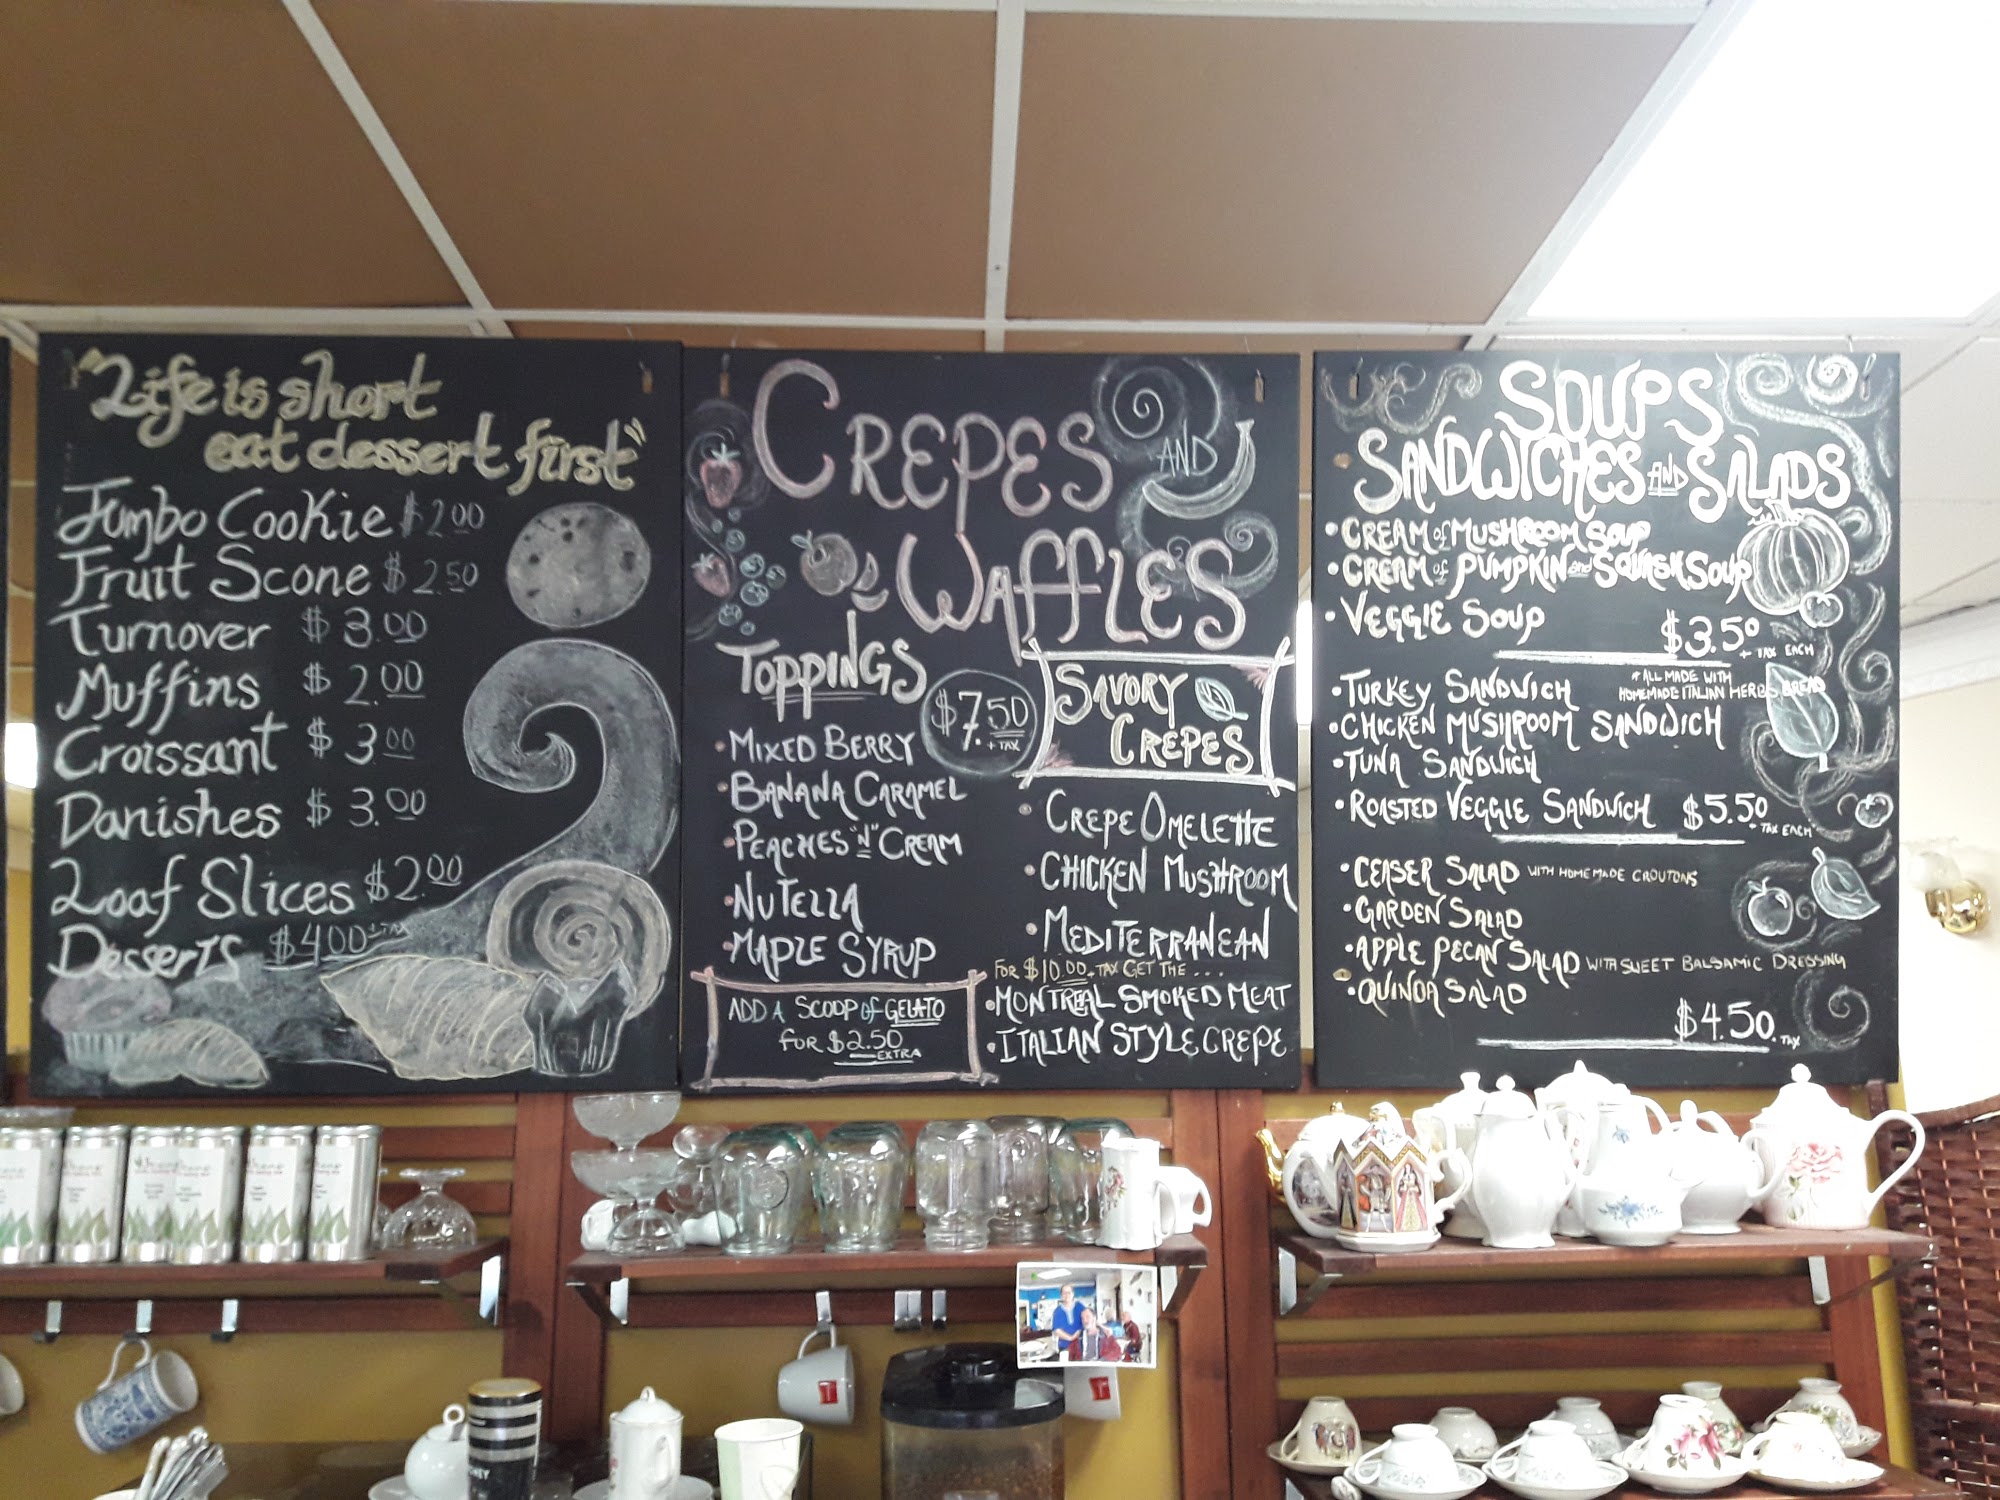 "Life is short
eat dessert first"
Jumbo Cookie $2.00
Fruit Scone $2.50
Turnover $3.00
Muffins $2.00
Croissant $3.00
Danishes $3.00
Loaf Slices $2.00
Desserts $4.00 + TAX
CREPES AND
WAFFLES
TOPPINGS
$7.50
+ TAX
• MIXED BERRY
• BANANA CARAMEL
• PEACHES "N" CREAM
• NUTELLA
• MAPLE SYRUP
ADD A SCOOP of GELATO
FOR $2.50
EXTRA
SAVORY
CREPES
• CREPE OMELETTE
• CHICKEN MUSHROOM
• MEDITERRANEAN
FOR $10.00 + TAX GET THE ...
• MONTREAL SMOKED MEAT
• ITALIAN STYLE CREPE
SOUPS
SANDWICHES AND SALADS
• CREAM of MUSHROOM SOUP
• CREAM of PUMPKIN and SQUASH SOUP
• VEGGIE SOUP
$3.50
+ TAX EACH
* ALL MADE WITH
HOMEMADE ITALIAN HERB BREAD
• TURKEY SANDWICH
• CHICKEN MUSHROOM SANDWICH
• TUNA SANDWICH
• ROASTED VEGGIE SANDWICH $5.50
+ TAX EACH
• CEASER SALAD WITH HOMEMADE CROUTONS
• GARDEN SALAD
• APPLE PECAN SALAD WITH SWEET BALSAMIC DRESSING
• QUINOA SALAD
$4.50 + TAX